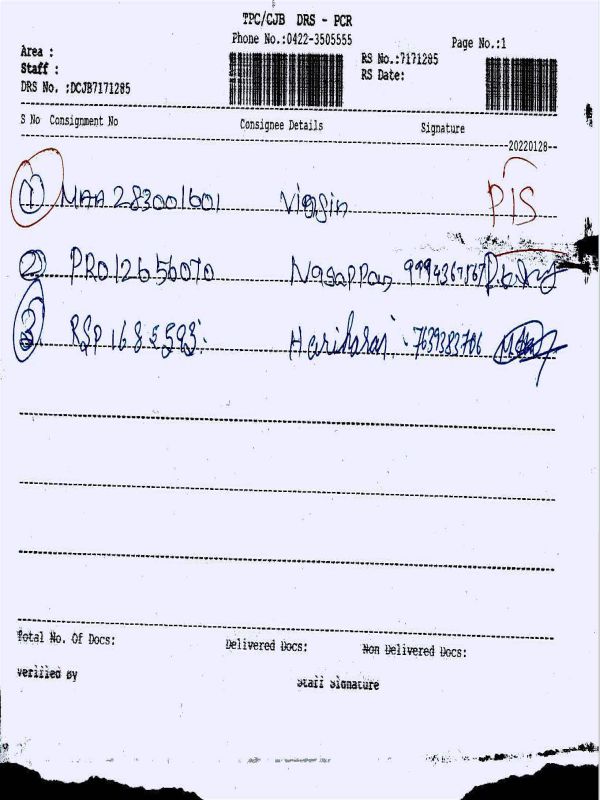 TPC/CJB DRS - PCR
Phone No.:0422-3505555
Page No.:1
Area :
Staff :
DRS No. :DCJB7171285
RS No.:7171285
RS Date:
S No Consignment No Consignee Details Signature
20220128
1 MAA283001601 PIS
2 PRO12656070 Nagappan
3 Hariharan 7639383706
Total No. Of Docs: Delivered Docs: Non Delivered Docs:
Verified By Staff Signature